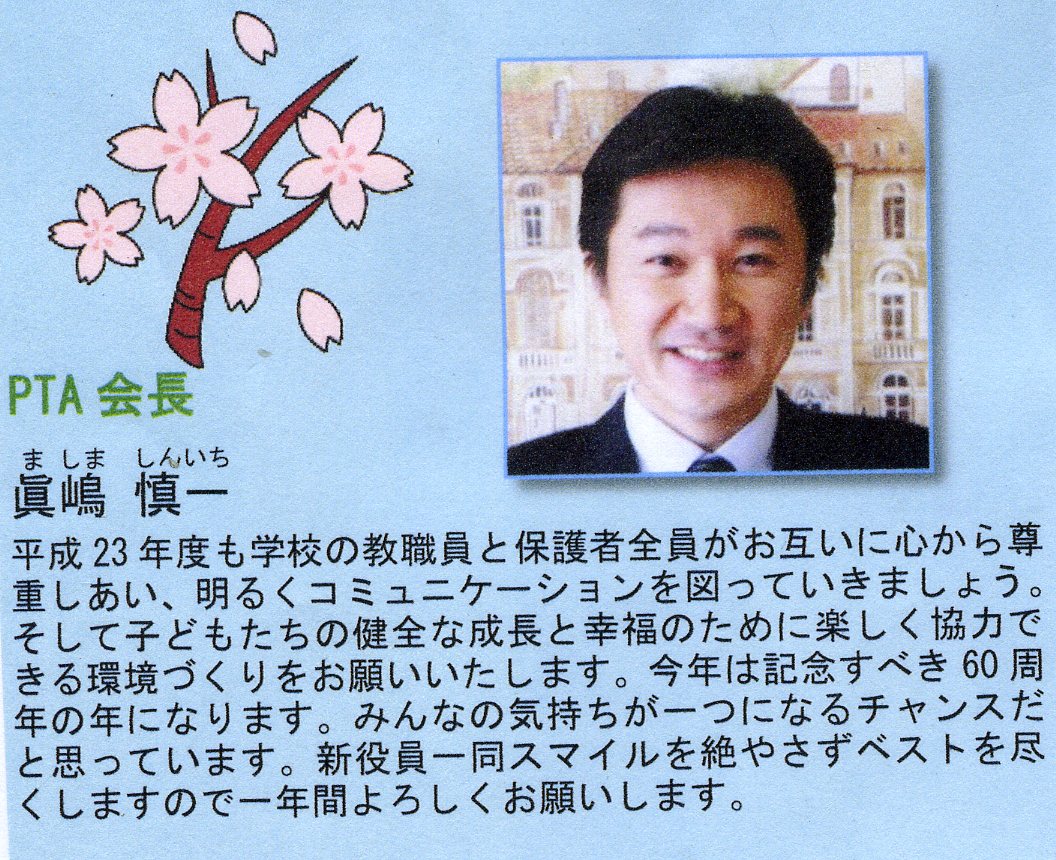 PTA 会長
ま しま しんいち
眞嶋 慎一
平成 23 年度も学校の教職員と保護者全員がお互いに心から尊
重しあい、明るくコミュニケーションを図っていきましょう。
そして子どもたちの健全な成長と幸福のために楽しく協力で
きる環境づくりをお願いいたします。今年は記念すべき 60 周
年の年になります。みんなの気持ちが一つになるチャンスだ
と思っています。新役員一同スマイルを絶やさずベストを尽
くしますので一年間よろしくお願いします。